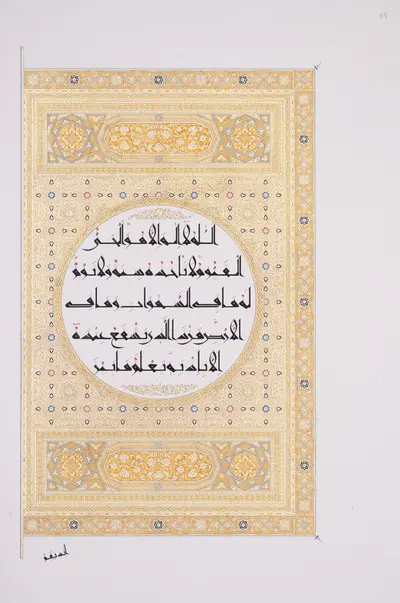 الله لا اله الا هو الحي
القيوم لا تأخذه سنة ولا نوم
له ما في السموات وما في
الارض من ذا الذي يشفع عنده
الا باذنه يعلم ما بين
ايديهم